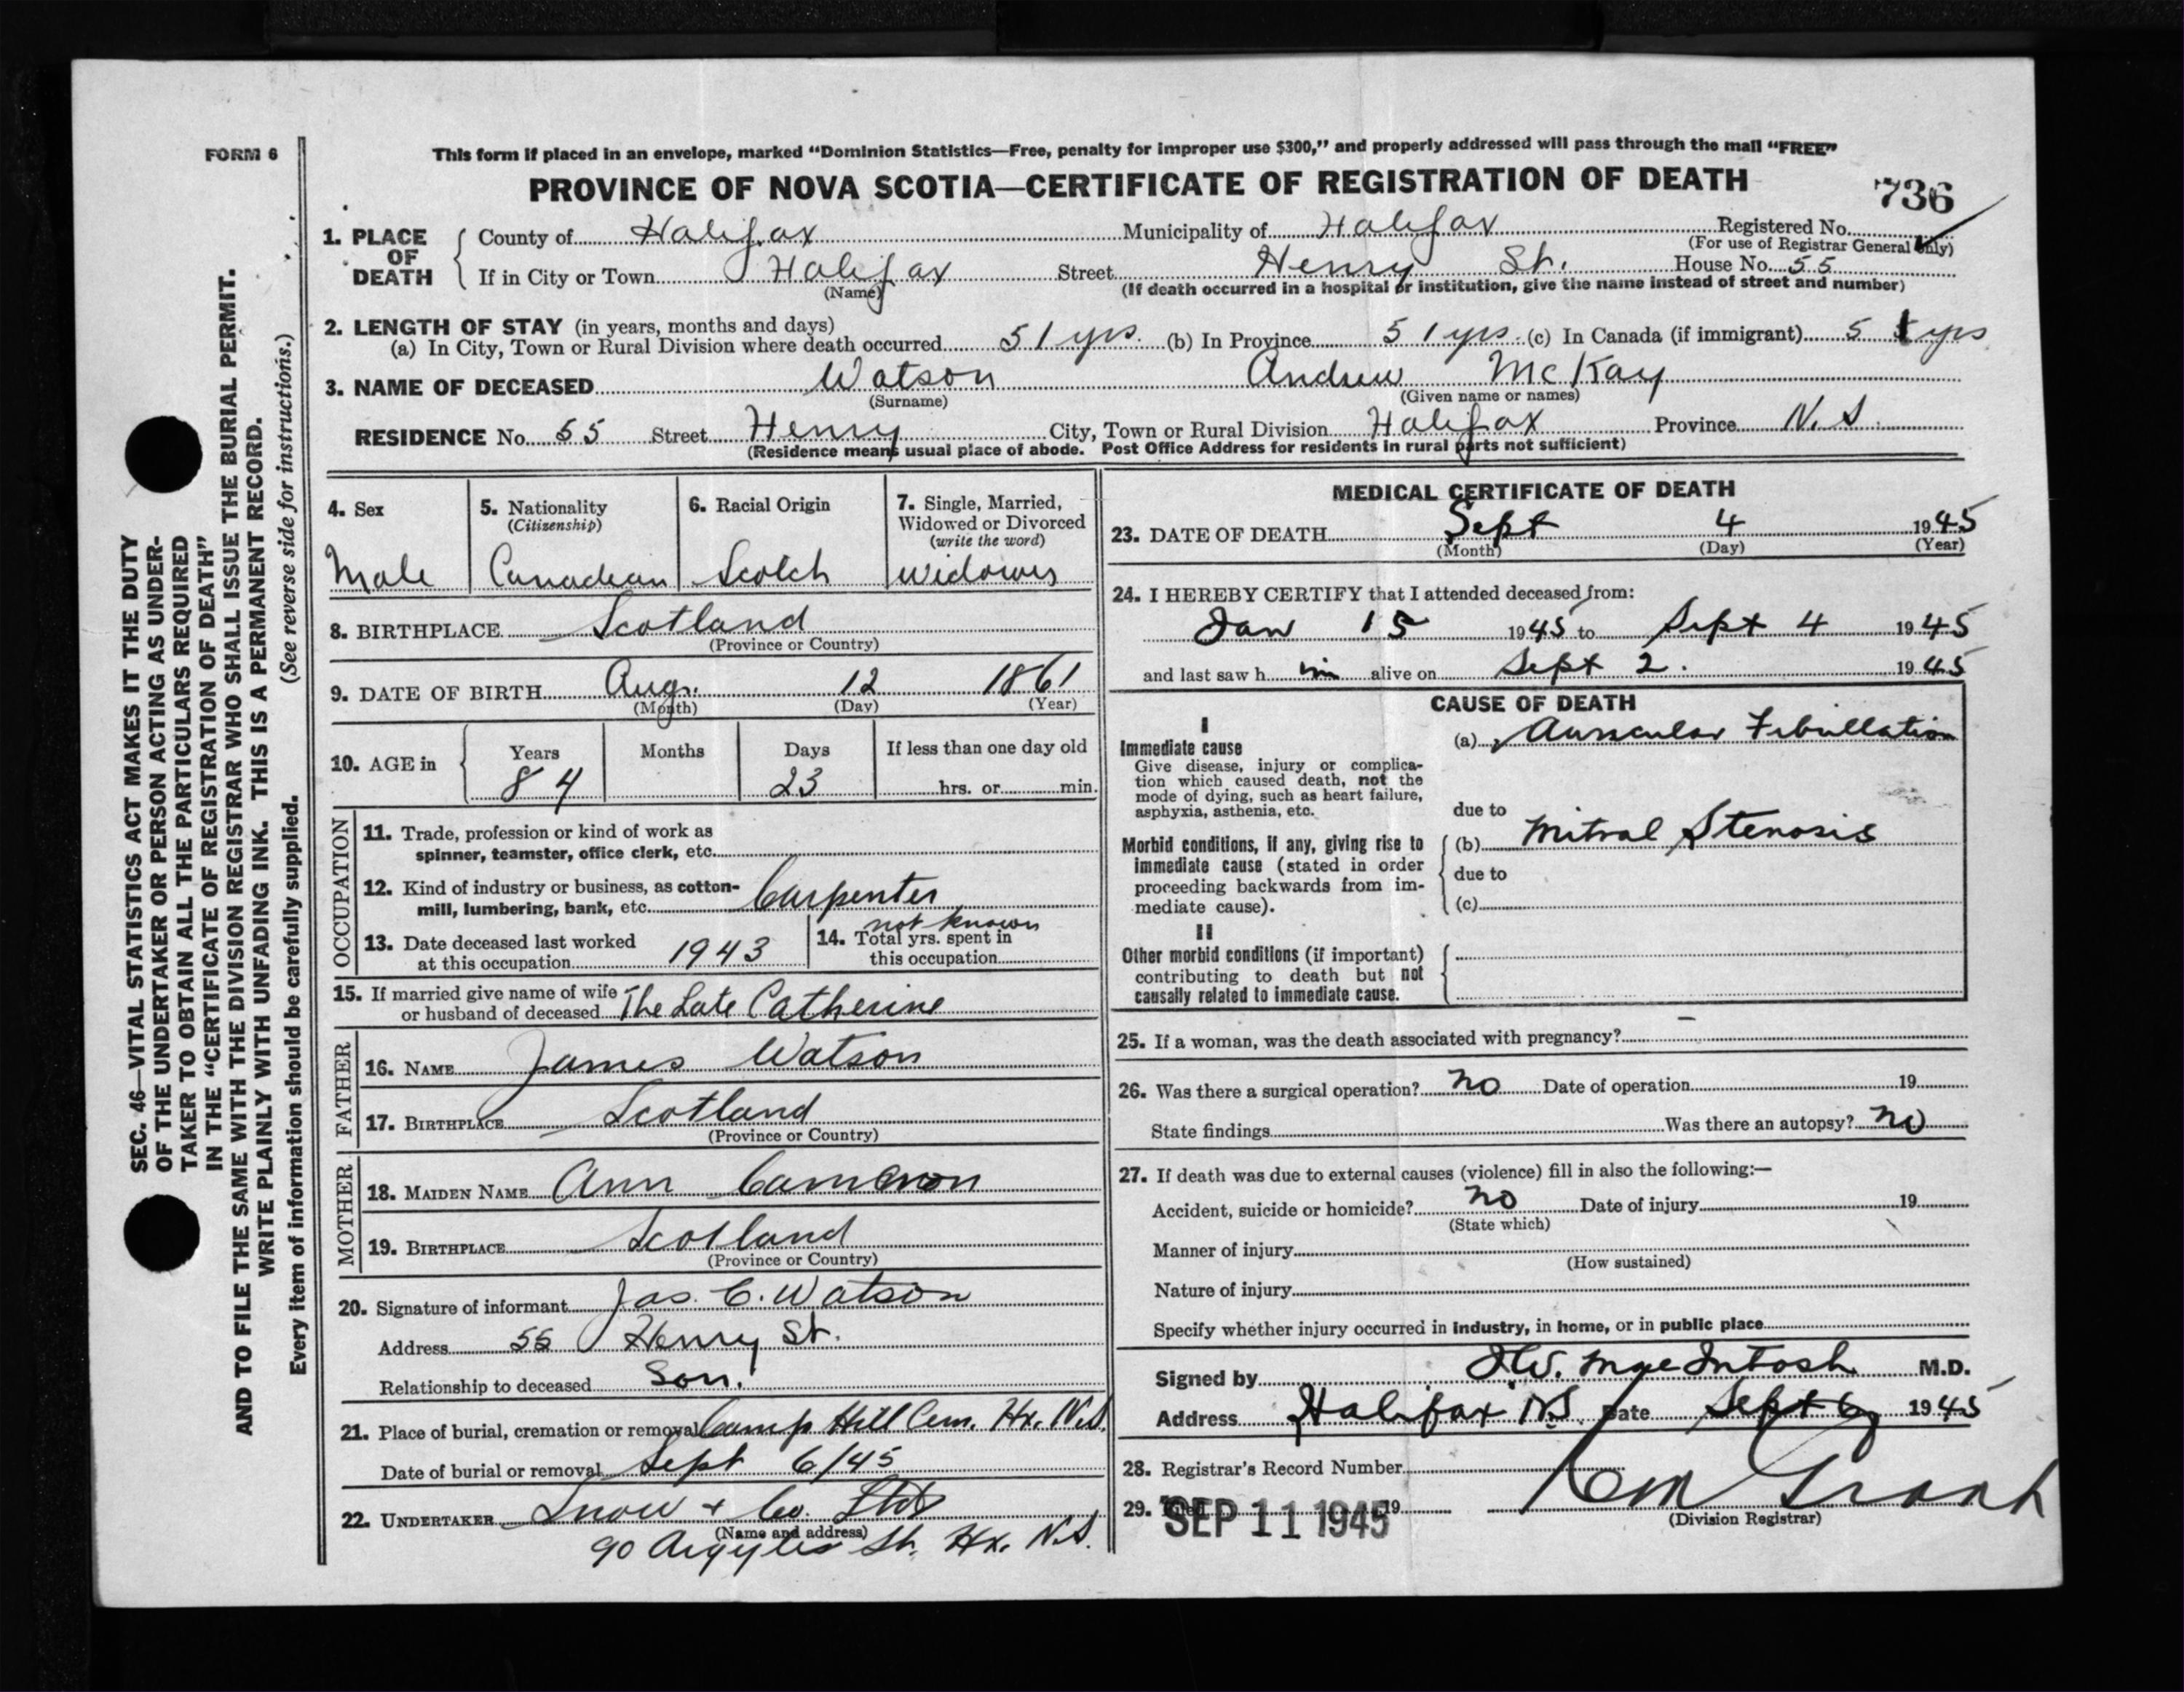 FORM 6
This form if placed in an envelope, marked “Dominion Statistics—Free, penalty for improper use $300,” and properly addressed will pass through the mail “FREE”
PROVINCE OF NOVA SCOTIA—CERTIFICATE OF REGISTRATION OF DEATH
736
SEC. 46—VITAL STATISTICS ACT MAKES IT THE DUTY
OF THE UNDERTAKER OR PERSON ACTING AS UNDER-
TAKER TO OBTAIN ALL THE PARTICULARS REQUIRED
IN THE “CERTIFICATE OF REGISTRATION OF DEATH”
AND TO FILE THE SAME WITH THE DIVISION REGISTRAR WHO SHALL ISSUE THE BURIAL PERMIT.
WRITE PLAINLY WITH UNFADING INK. THIS IS A PERMANENT RECORD.
Every item of information should be carefully supplied. (See reverse side for instructions.)
1. PLACE OF DEATH
County of Halifax Municipality of Halifax Registered No.
(For use of Registrar General only)
If in City or Town Halifax Street Henry St. House No. 55
(Name) (If death occurred in a hospital or institution, give the name instead of street and number)
2. LENGTH OF STAY (in years, months and days)
(a) In City, Town or Rural Division where death occurred 51 yrs. (b) In Province 51 yrs. (c) In Canada (if immigrant) 51 yrs
3. NAME OF DECEASED Watson Andrew McKay
(Surname) (Given name or names)
RESIDENCE No. 55 Street Henry City, Town or Rural Division Halifax Province N.S.
(Residence means usual place of abode. Post Office Address for residents in rural parts not sufficient)
4. Sex
Male
5. Nationality
(Citizenship)
Canadian
6. Racial Origin
Scotch
7. Single, Married,
Widowed or Divorced
(write the word)
Widower
8. BIRTHPLACE Scotland
(Province or Country)
9. DATE OF BIRTH Aug. 12 1861
(Month) (Day) (Year)
10. AGE in
Years Months Days If less than one day old
84 23 hrs. or min.
OCCUPATION
11. Trade, profession or kind of work as
spinner, teamster, office clerk, etc.
12. Kind of industry or business, as cotton-
mill, lumbering, bank, etc. Carpenter
13. Date deceased last worked
at this occupation 1943
14. Total yrs. spent in
this occupation
not known
15. If married give name of wife
or husband of deceased The Late Catherine
FATHER
16. NAME James Watson
17. BIRTHPLACE Scotland
(Province or Country)
MOTHER
18. MAIDEN NAME Ann Cameron
19. BIRTHPLACE Scotland
(Province or Country)
20. Signature of informant Jas. C. Watson
Address 55 Henry St.
Relationship to deceased Son.
21. Place of burial, cremation or removal Camp Hill Cem. Hx. N.S.
Date of burial or removal Sept 6/45
22. UNDERTAKER Snow + Co. Ltd
(Name and address)
90 Argyle St. Hx. N.S.
MEDICAL CERTIFICATE OF DEATH
23. DATE OF DEATH Sept 4 1945
(Month) (Day) (Year)
24. I HEREBY CERTIFY that I attended deceased from:
Jan 15 1945 to Sept 4 1945
and last saw h im alive on Sept 2. 1945
CAUSE OF DEATH
I
Immediate cause
Give disease, injury or complica-
tion which caused death, not the
mode of dying, such as heart failure,
asphyxia, asthenia, etc.
(a) Auricular Fibrillation
due to
Morbid conditions, if any, giving rise to
immediate cause (stated in order
proceeding backwards from im-
mediate cause).
(b) Mitral Stenosis
due to
(c)
II
Other morbid conditions (if important)
contributing to death but not
causally related to immediate cause.
25. If a woman, was the death associated with pregnancy? —
26. Was there a surgical operation? no Date of operation 19
State findings Was there an autopsy? no
27. If death was due to external causes (violence) fill in also the following:—
Accident, suicide or homicide? no Date of injury 19
(State which)
Manner of injury
(How sustained)
Nature of injury
Specify whether injury occurred in industry, in home, or in public place
Signed by MacIntosh M.D.
Address Halifax N.S. Date Sept 6 1945
28. Registrar's Record Number
29. Filed 19
SEP 11 1945
Grant
(Division Registrar)